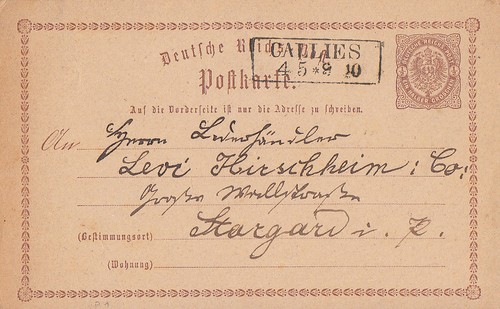 Deutsche Reichspost
CALLIES
4 5 *9 10
Postkarte.
Auf die Vorderseite ist nur die Adresse zu schreiben.
An Herrn Lederhändler
Levi Hirschheim : Co:
Große Wallstraße
(Bestimmungsort) Stargard i. P.
(Wohnung)